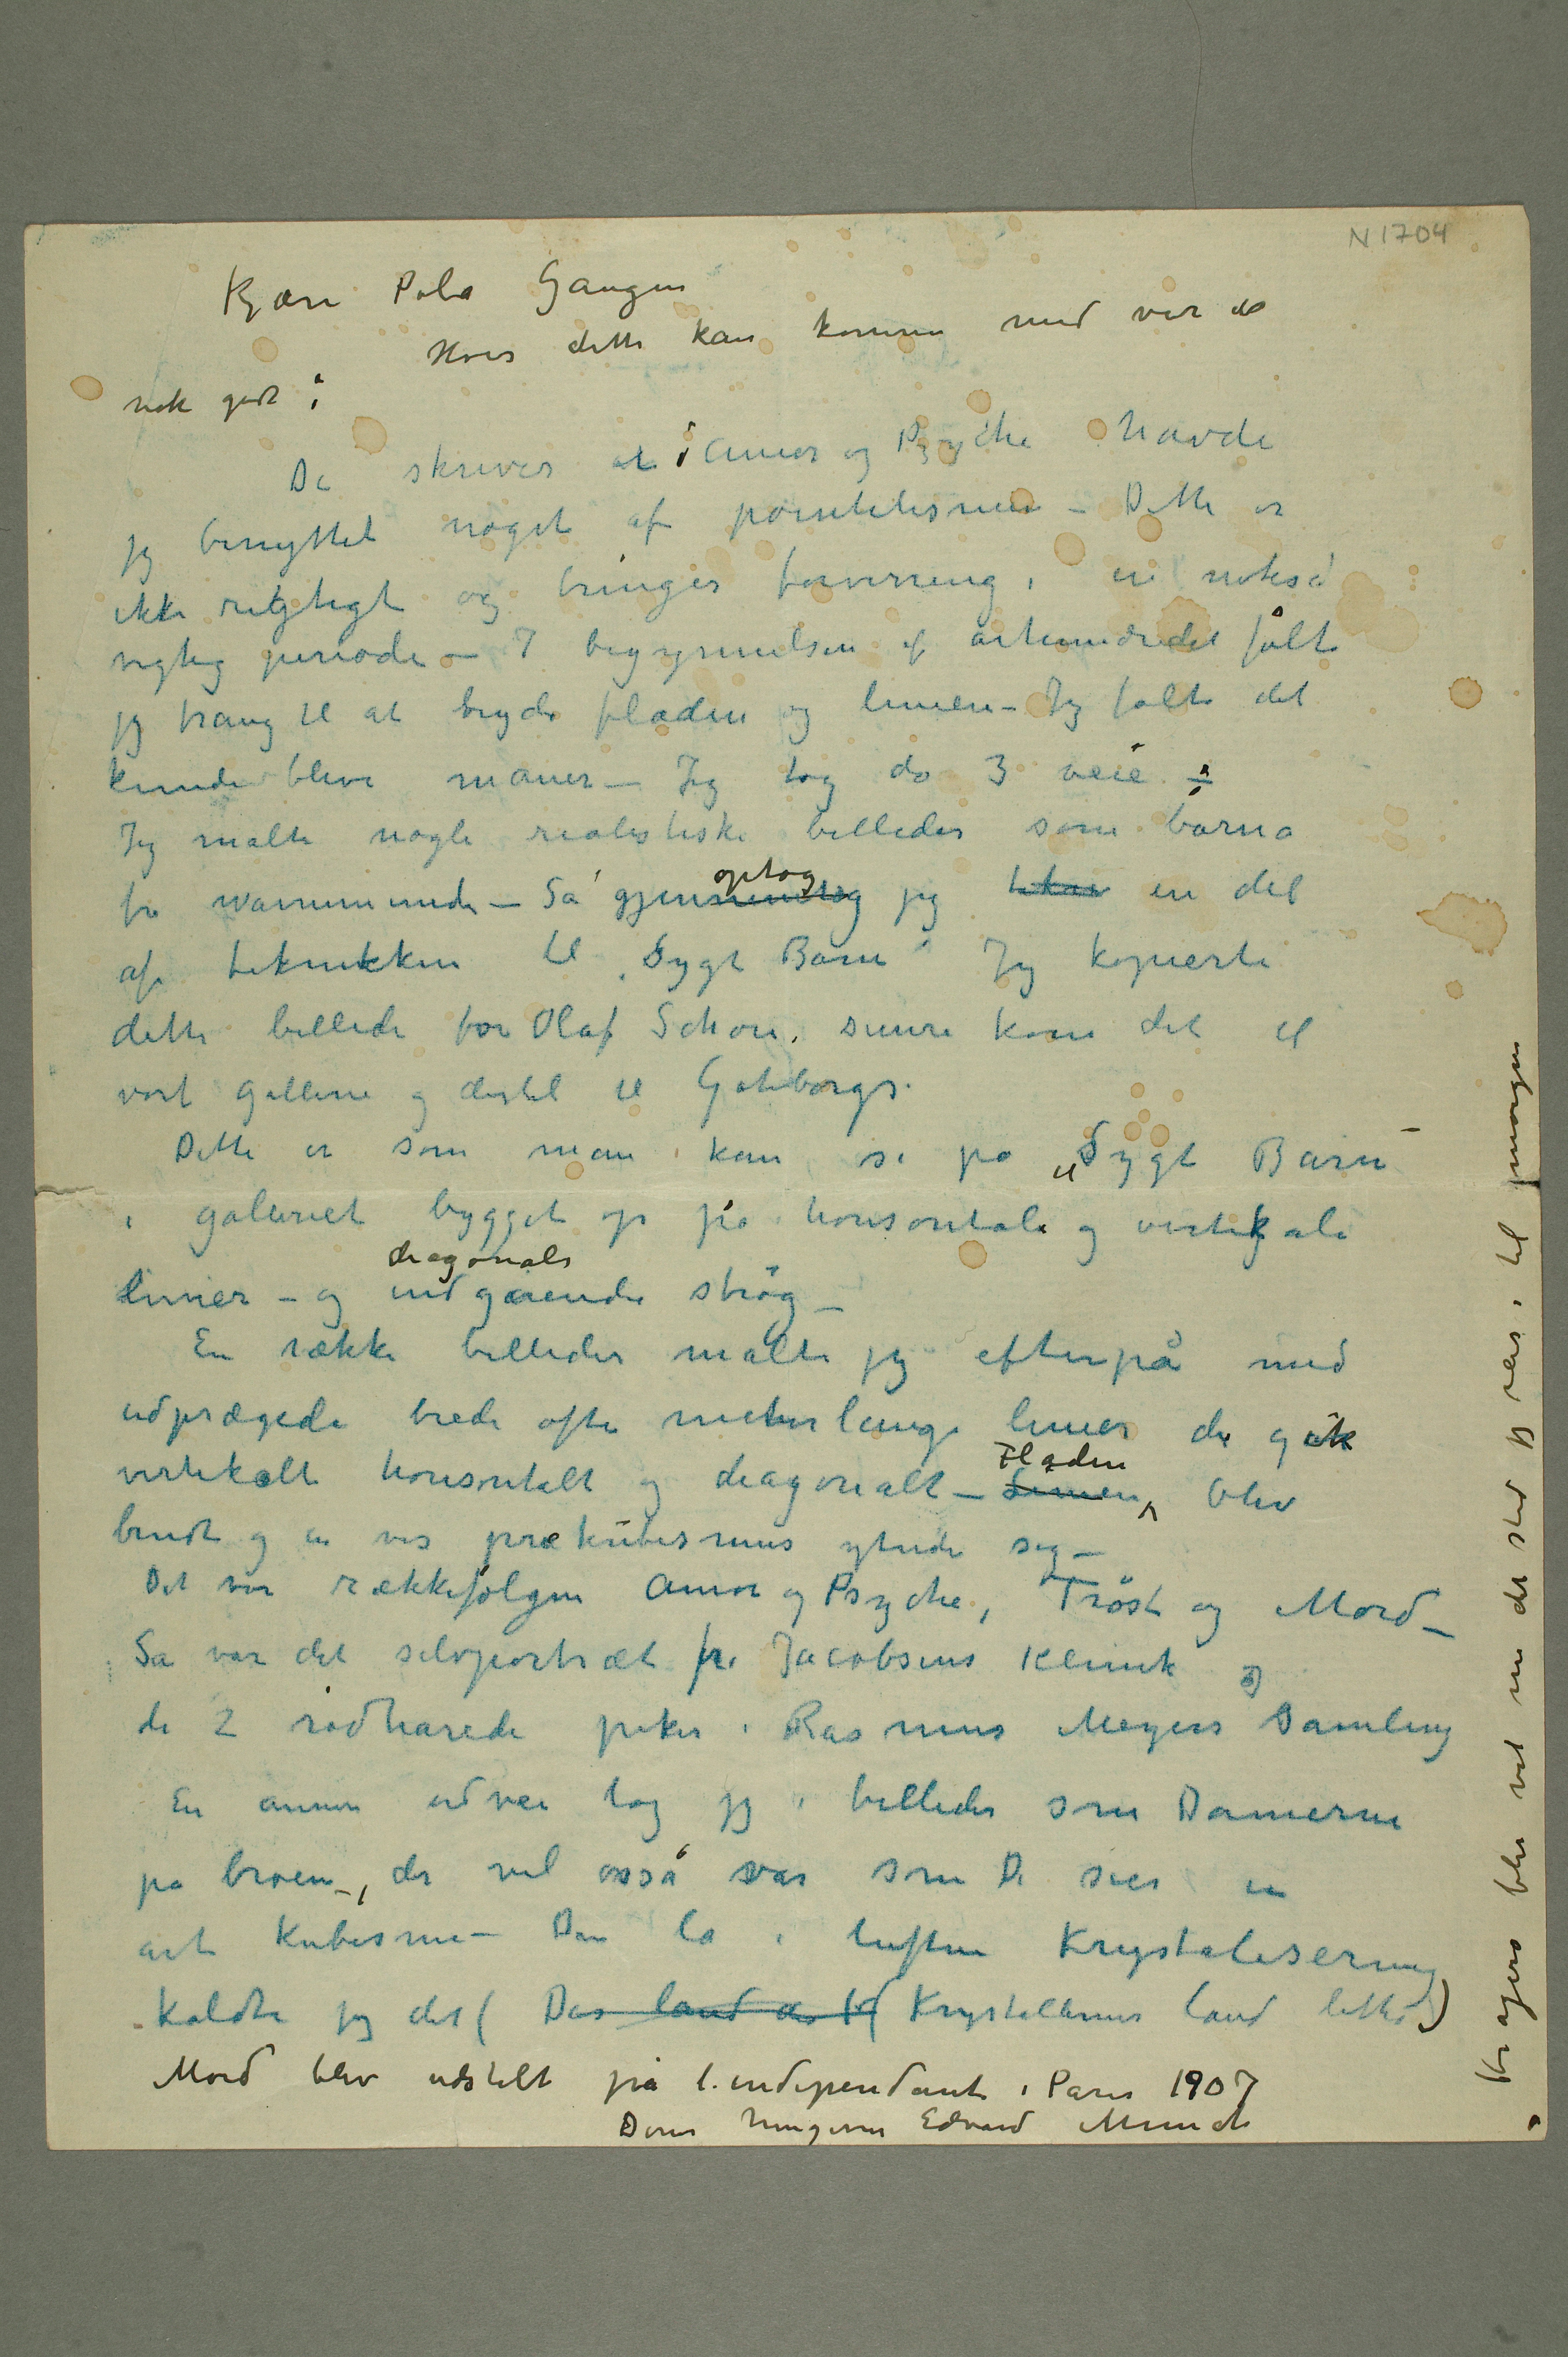 N 1704
Kjære Pola Gaugin
Hvis dette kan komme med var det
nok godt:
De skriver at i Amor og Psyche havde
jeg benyttet noget af pointelismen – Dette er
ikke rigtigt og bringer forvirring i en nokså
vigtig periode – I begynnelsen af århundredet følte
jeg trang til at bryde fladen og linien – Jeg følte det
kunde blive maner – Jeg tog da 3 veie –:
Jeg malte nogle realistiske billeder som børna
fra Warnemünde – Så gjennemtog optog jeg en del
af teknikken til „Sygt Barn“ Jeg kopierte
dette billede for Olaf Schou, senere kom det til
vort galleri og dertil til Gøteborgs.
Dette er som man kan se på „Sygt Barn“
i galleriet bygget op på horisontale og vertikale
linier – og diagonale indgående strøg –
En række billeder malte jeg efterpå med
udprægede brede ofte meterlange linier der gik
vertikalt horisontalt og diagonalt – Linien Fladen blev
brudt og en vis prækubismus ytrede sig –
Det var rækkefølgen Amor og Psyche, Trøst og Mord –
Så var det selvportræt fra Jacobsens Klinik og
de 2 rødhårede piker i Rasmus Meyers Samling
En annen udvei tog jeg i billeder som Damerne
på broen –, der vel også var som De sier en
art Kubisme – Den lå i luften Krystalisering
kaldte jeg det ( Das land des K( Krystallernes land )
Mord blev udstilt på l. independants i Paris 1907
Deres hengivne Edvard Munch
Kragerø blir vel en det sted jeg reis. til imorgen